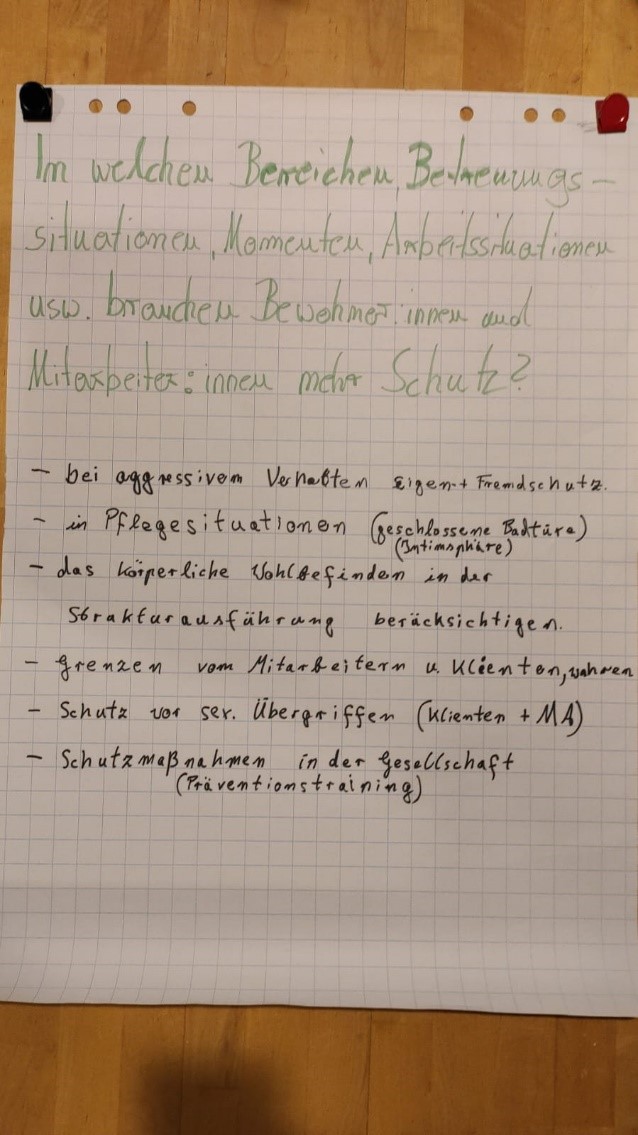 In welchen Bereichen, Betreuungs-
situationen, Momenten, Arbeitssituationen
usw. brauchen Bewohner:innen und
Mitarbeiter:innen mehr Schutz?
- bei aggressivem Verhalten Eigen- + Fremdschutz.
- in Pflegesituationen (geschlossene Badtüre)
(Intimsphäre)
- das körperliche Wohlbefinden in der
Strukturausführung berücksichtigen.
- Grenzen vom Mitarbeitern u. Klienten, wahren
- Schutz vor sex. Übergriffen (Klienten + MA)
- Schutzmaßnahmen in der Gesellschaft
(Präventionstraining)